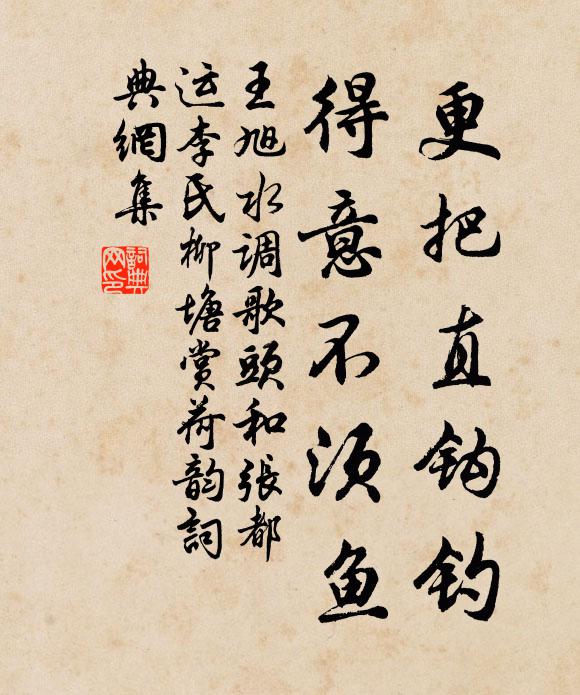 更把直钩钓
得意不须鱼
王旭水调歌頭和張都
运李氏柳塘賞荷韵詞
典網集
詞典
网印